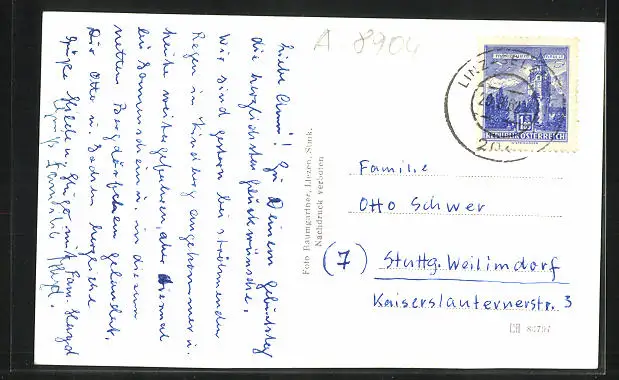 A-8904
Liebe Anne! Zu Deinem Geburtstag
die herzlichsten Glückwünsche.
Wir sind gestern bei strömendem
Regen in angekommen u.
heute weitergefahren, aber diesmal
bei Sonnenschein u. in diesem
netten Bergdörfchen gelandet.
Dir, Otto u. Buben herzliche
Grüße u. mit Fam.
Foto Baumgartner, Liezen, Stmk.
Nachdruck verboten
LINZ
REPUBLIK ÖSTERREICH
Familie
Otto Schwer
(7) Stuttg. Weilimdorf
Kaiserslauternerstr. 3